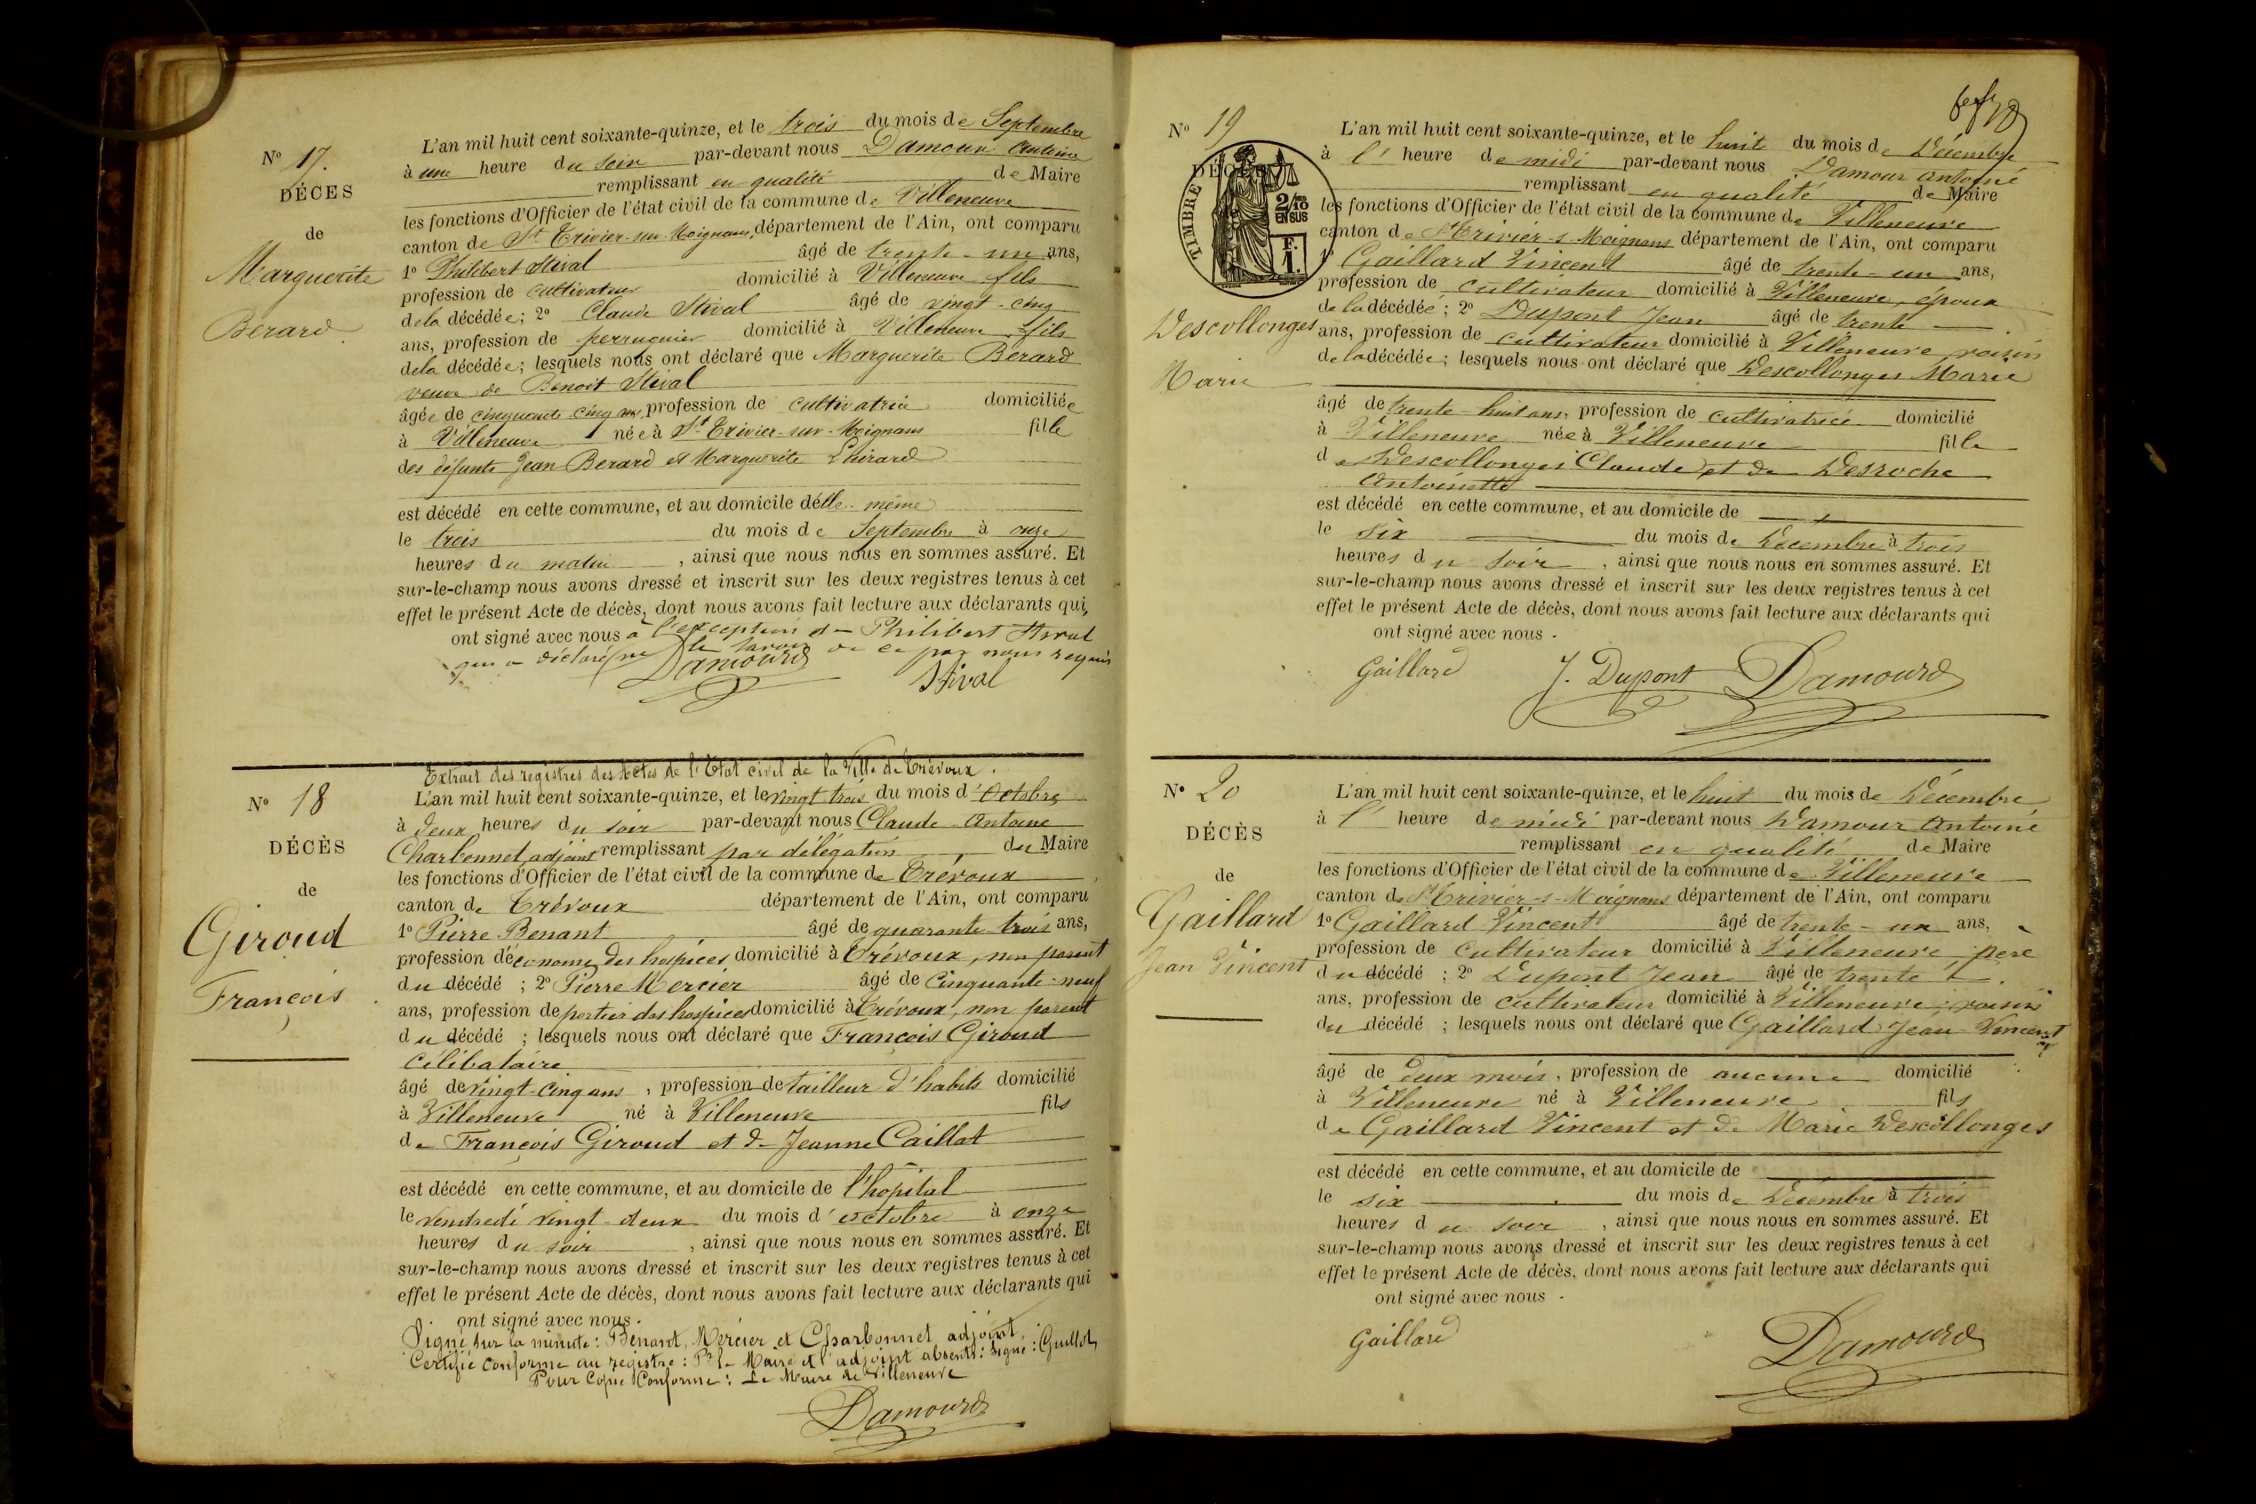 N° 17.
DÉCÈS
de
Marguerite
Berard
L'an mil huit cent soixante-quinze, et le trois du mois de Septembre
à une heure du soir par-devant nous Damour Antoine
remplissant en qualité de Maire
les fonctions d'Officier de l'état civil de la commune de Villeneuve
canton de St Trivier-sur-Moignans, département de l'Ain, ont comparu
1° Philibert Stival âgé de trente-un ans,
profession de cultivateur domicilié à Villeneuve fils
de la décédée; 2° Claude Stival âgé de vingt-cinq
ans, profession de perruquier domicilié à Villeneuve fils
de la décédée; lesquels nous ont déclaré que Marguerite Berard
veuve de Benoit Stival
âgée de cinquante-cinq ans, profession de cultivatrice domiciliée
à Villeneuve née à St Trivier-sur-Moignans fille
des défunts Jean Berard et Marguerite
est décédé en cette commune, et au domicile d'elle-même
le trois du mois de Septembre à onze
heures du matin, ainsi que nous nous en sommes assuré. Et
sur-le-champ nous avons dressé et inscrit sur les deux registres tenus à cet
effet le présent Acte de décès, dont nous avons fait lecture aux déclarants qui,
ont signé avec nous à l'exception de Philibert Stival
qui a déclaré ne le savoir de ce par nous requis
Damour Stival
N° 18
DÉCÈS
de
Giroud
François
Extrait des registres des Actes de l'Etat civil de la Ville de Trévoux.
L'an mil huit cent soixante-quinze, et le vingt trois du mois d'Octobre
à deux heures du soir par-devant nous Claude Antoine
Charbonnet, adjoint remplissant par délégation du Maire
les fonctions d'Officier de l'état civil de la commune de Trévoux
canton de Trévoux département de l'Ain, ont comparu
1° Pierre Benant âgé de quarante-trois ans,
profession d'économe des hospices domicilié à Trévoux, non parent
du décédé; 2° Pierre Mercier âgé de cinquante-neuf
ans, profession de portier des hospices domicilié à Trévoux, non parent
du décédé; lesquels nous ont déclaré que François Giroud
célibataire
âgé de vingt-cinq ans, profession de tailleur d'habits domicilié
à Villeneuve né à Villeneuve fils
de François Giroud et de Jeanne Caillat
est décédé en cette commune, et au domicile de l'hôpital
le vendredi vingt-deux du mois d'octobre à onze
heures du soir, ainsi que nous nous en sommes assuré. Et
sur-le-champ nous avons dressé et inscrit sur les deux registres tenus à cet
effet le présent Acte de décès, dont nous avons fait lecture aux déclarants qui
ont signé avec nous.
Signé sur la minute: Benant, Mercier et Charbonnet, adjoint.
Certifié conforme au registre: Pr le Maire et l'adjoint absents: Signé: Guillot
Pour Copie Conforme: Le Maire de Villeneuve
Damour
N° 19
DÉCÈS
TIMBRE
2/10 EN SUS
F. 1.
Descollonges
Marie
L'an mil huit cent soixante-quinze, et le huit du mois de Décembre
à l' heure de midi par-devant nous Damour Antoine
remplissant en qualité de Maire
les fonctions d'Officier de l'état civil de la commune de Villeneuve
canton de St Trivier-s-Moignans département de l'Ain, ont comparu
1° Gaillard Vincent âgé de trente-un ans,
profession de cultivateur domicilié à Villeneuve, époux
de la décédée; 2° Dupont Jean âgé de trente
ans, profession de cultivateur domicilié à Villeneuve voisin
de la décédée; lesquels nous ont déclaré que Descollonges Marie
âgé de trente-huit ans, profession de cultivatrice domicilié
à Villeneuve née à Villeneuve fille
de Descollonges Claude et de Desroche
Antoinette
est décédé en cette commune, et au domicile de
le six du mois de Décembre à trois
heures du soir, ainsi que nous nous en sommes assuré. Et
sur-le-champ nous avons dressé et inscrit sur les deux registres tenus à cet
effet le présent Acte de décès, dont nous avons fait lecture aux déclarants qui
ont signé avec nous.
Gaillard J. Dupont Damour
N° 20
DÉCÈS
de
Gaillard
Jean Vincent
L'an mil huit cent soixante-quinze, et le huit du mois de Décembre
à l' heure de midi par-devant nous Damour Antoine
remplissant en qualité de Maire
les fonctions d'Officier de l'état civil de la commune de Villeneuve
canton de St Trivier-s-Moignans département de l'Ain, ont comparu
1° Gaillard Vincent âgé de trente-un ans,
profession de cultivateur domicilié à Villeneuve, père
du décédé; 2° Dupont Jean âgé de trente
ans, profession de cultivateur domicilié à Villeneuve, voisin
du décédé; lesquels nous ont déclaré que Gaillard Jean Vincent
âgé de deux mois, profession de aucune domicilié
à Villeneuve né à Villeneuve fils
de Gaillard Vincent et de Marie Descollonges
est décédé en cette commune, et au domicile de
le six du mois de Décembre à trois
heures du soir, ainsi que nous nous en sommes assuré. Et
sur-le-champ nous avons dressé et inscrit sur les deux registres tenus à cet
effet le présent Acte de décès, dont nous avons fait lecture aux déclarants qui
ont signé avec nous.
Gaillard Damour